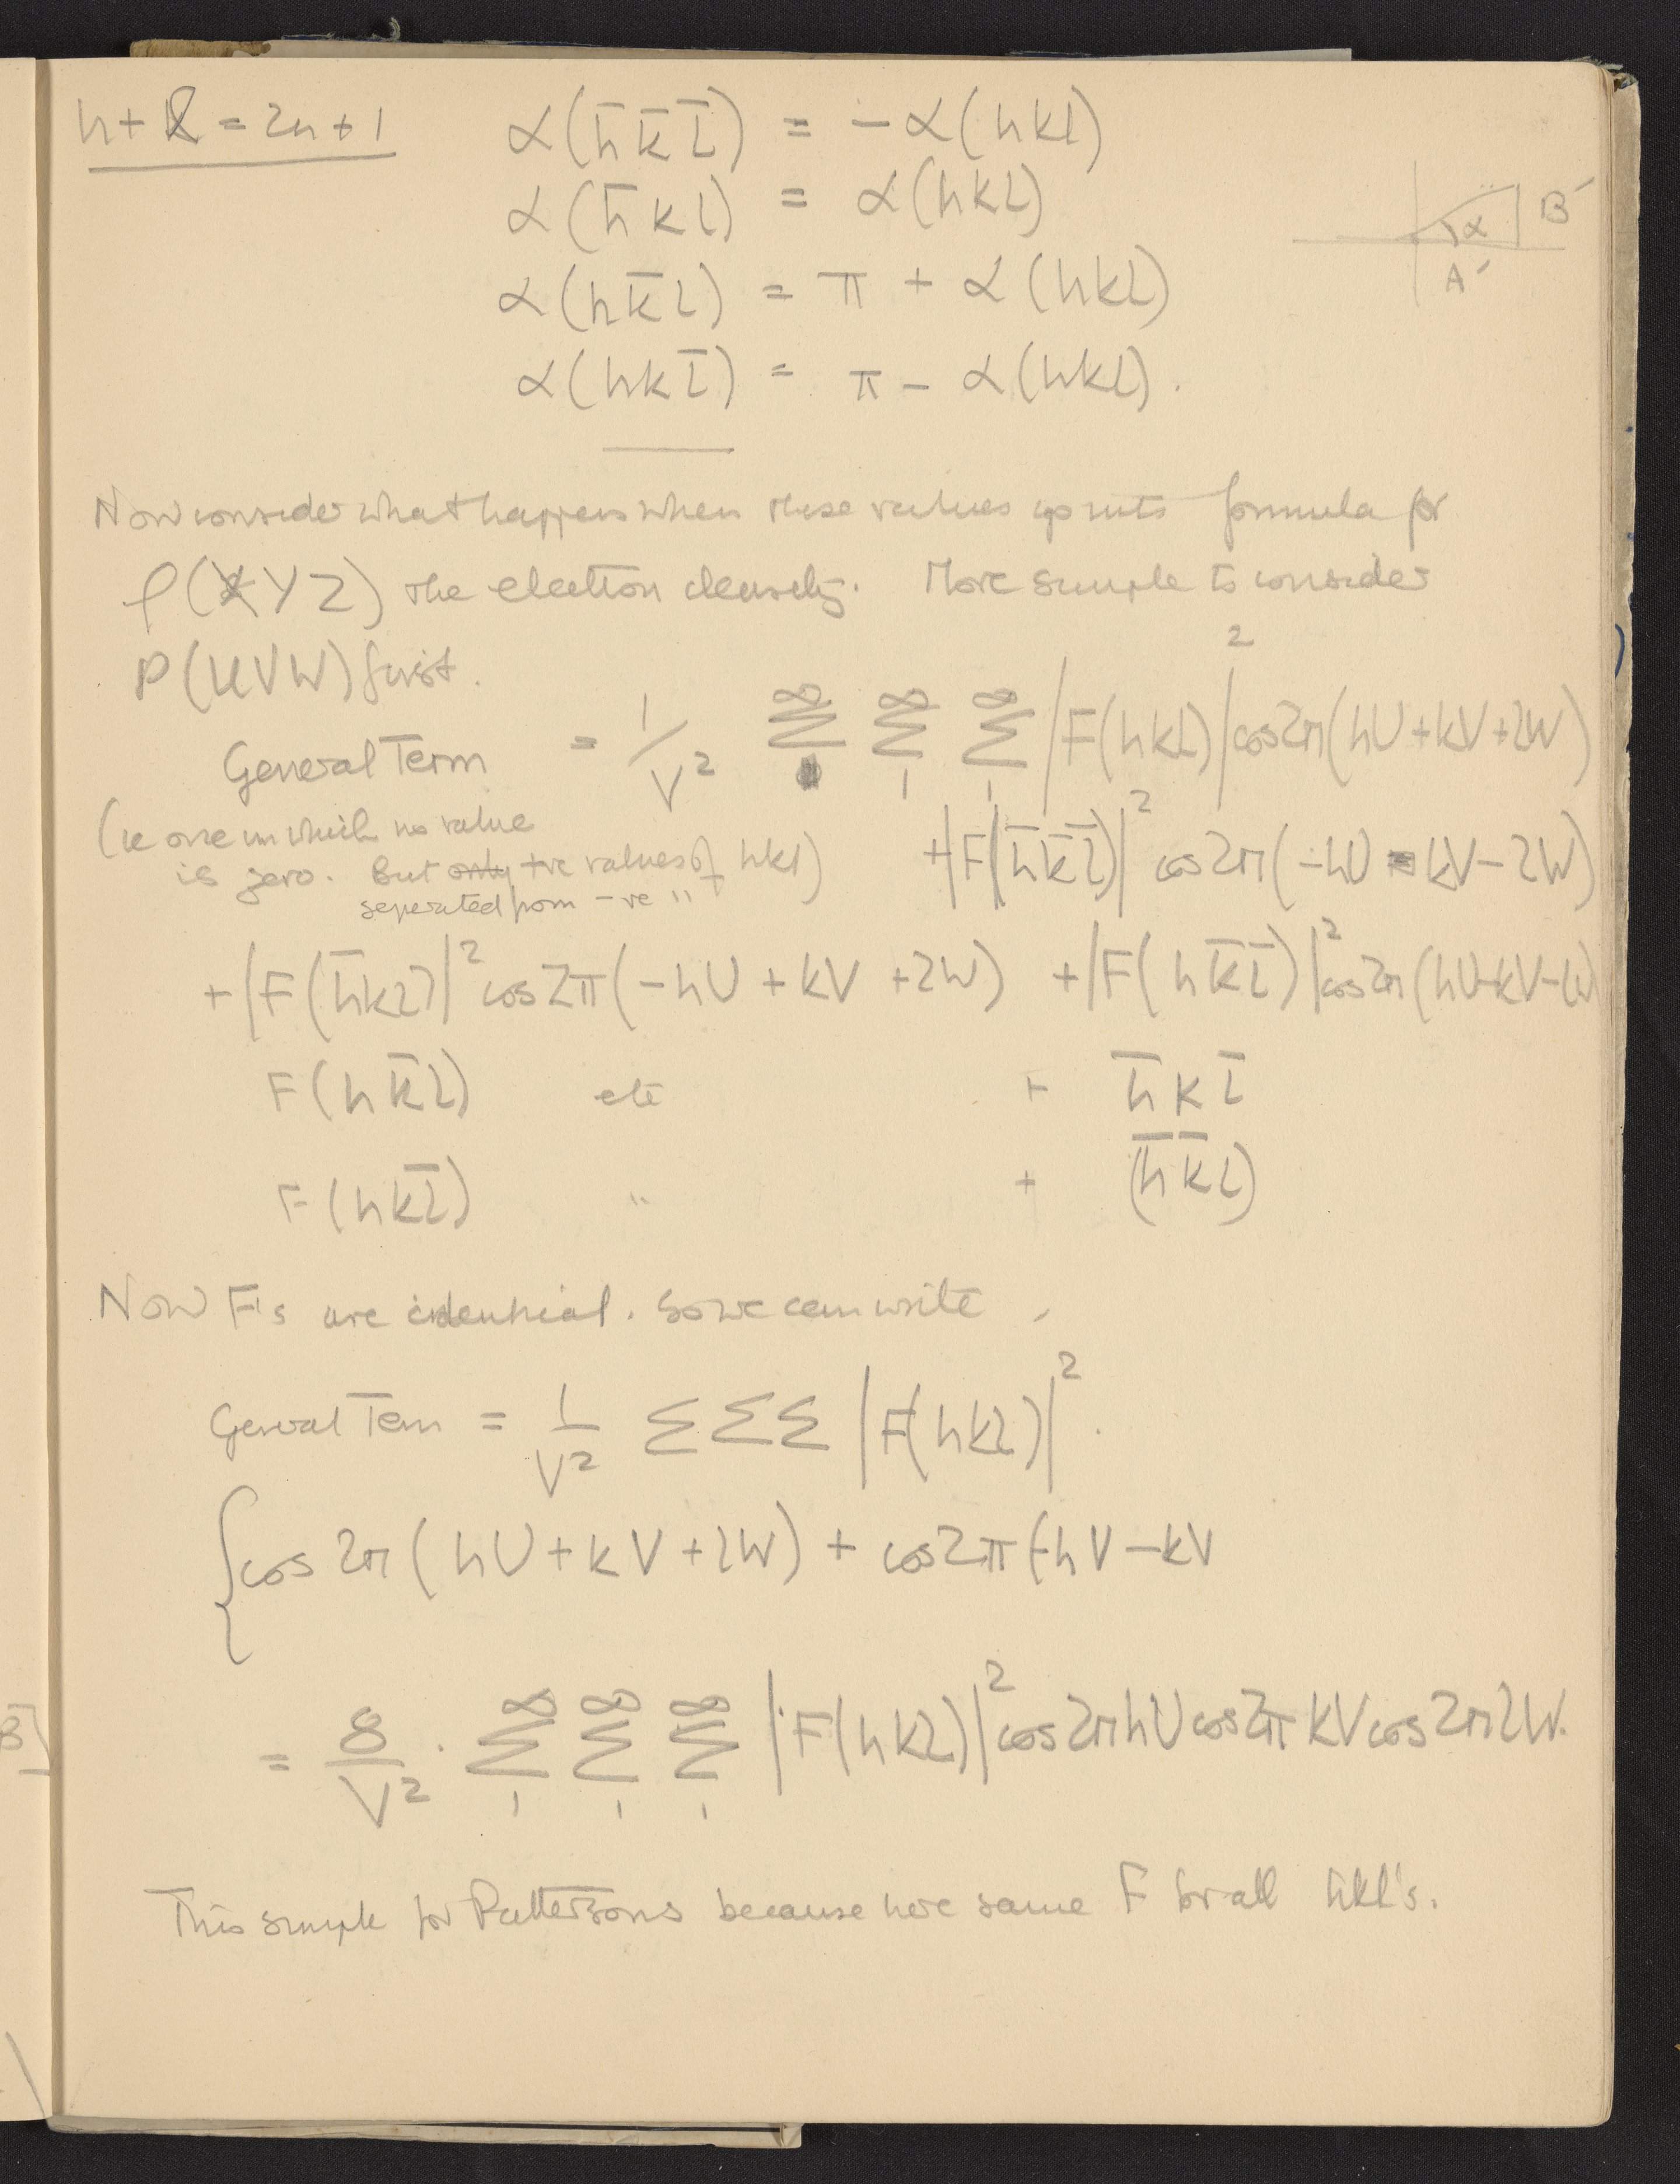 h+k = 2n+1
α(h̄k̄l̄) = −α(hkl)
α(h̄kl) = α(hkl)
α(hk̄l) = π + α(hkl)
α(hkl̄) = π − α(hkl).
α B′
A′
Now consider what happens when these values go into formula for
ρ(XYZ) the electron density. More simple to consider
P(UVW) first.
General Term = 1/V² ∞Σ ∞Σ1 ∞Σ1 |F(hkl)|² cos2π(hU+kV+lW)
(ie one in which no value
is zero. But only +ve values of hkl)
seperated from −ve "
+|F(h̄k̄l̄)|² cos2π(−hU−kV−lW)
+|F(h̄kl)|² cos2π(−hU+kV+lW) +|F(hk̄l̄)|² cos2π(hU−kV−lW)
F(hk̄l) etc + h̄kl̄
F(hkl̄) " + (h̄k̄l)
Now F's are idential. So we can write
General Term = 1/V² ΣΣΣ |F(hkl)|².
{cos 2π(hU+kV+lW) + cos2π(−hV−kV
= 8/V² . ∞Σ1 ∞Σ1 ∞Σ1 |F(hkl)|² cos2πhU cos2πkV cos2πlW.
This simple for Pattersons because have same F for all hkl's.